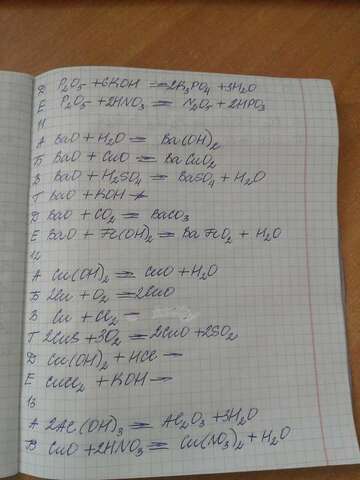 Д P₂O₅ + 6KOH = 2K₃PO₄ + 3H₂O
Е P₂O₅ + 2HNO₃ = N₂O₅ + 2HPO₃
11
А BaO + H₂O = Ba(OH)₂
Б BaO + CuO = BaCuO₂
В BaO + H₂SO₄ = BaSO₄ + H₂O
Г BaO + KOH ≠
Д BaO + CO₂ = BaCO₃
Е BaO + Fe(OH)₂ = BaFeO₂ + H₂O
12
А Cu(OH)₂ = CuO + H₂O
Б 2Cu + O₂ = 2CuO
В Cu + Cl₂ —
Г 2CuS + 3O₂ = 2CuO + 2SO₂
Д Cu(OH)₂ + HCl —
Е CuCl₂ + KOH —
13
А 2Al(OH)₃ = Al₂O₃ + 3H₂O
В CuO + 2HNO₃ = Cu(NO₃)₂ + H₂O